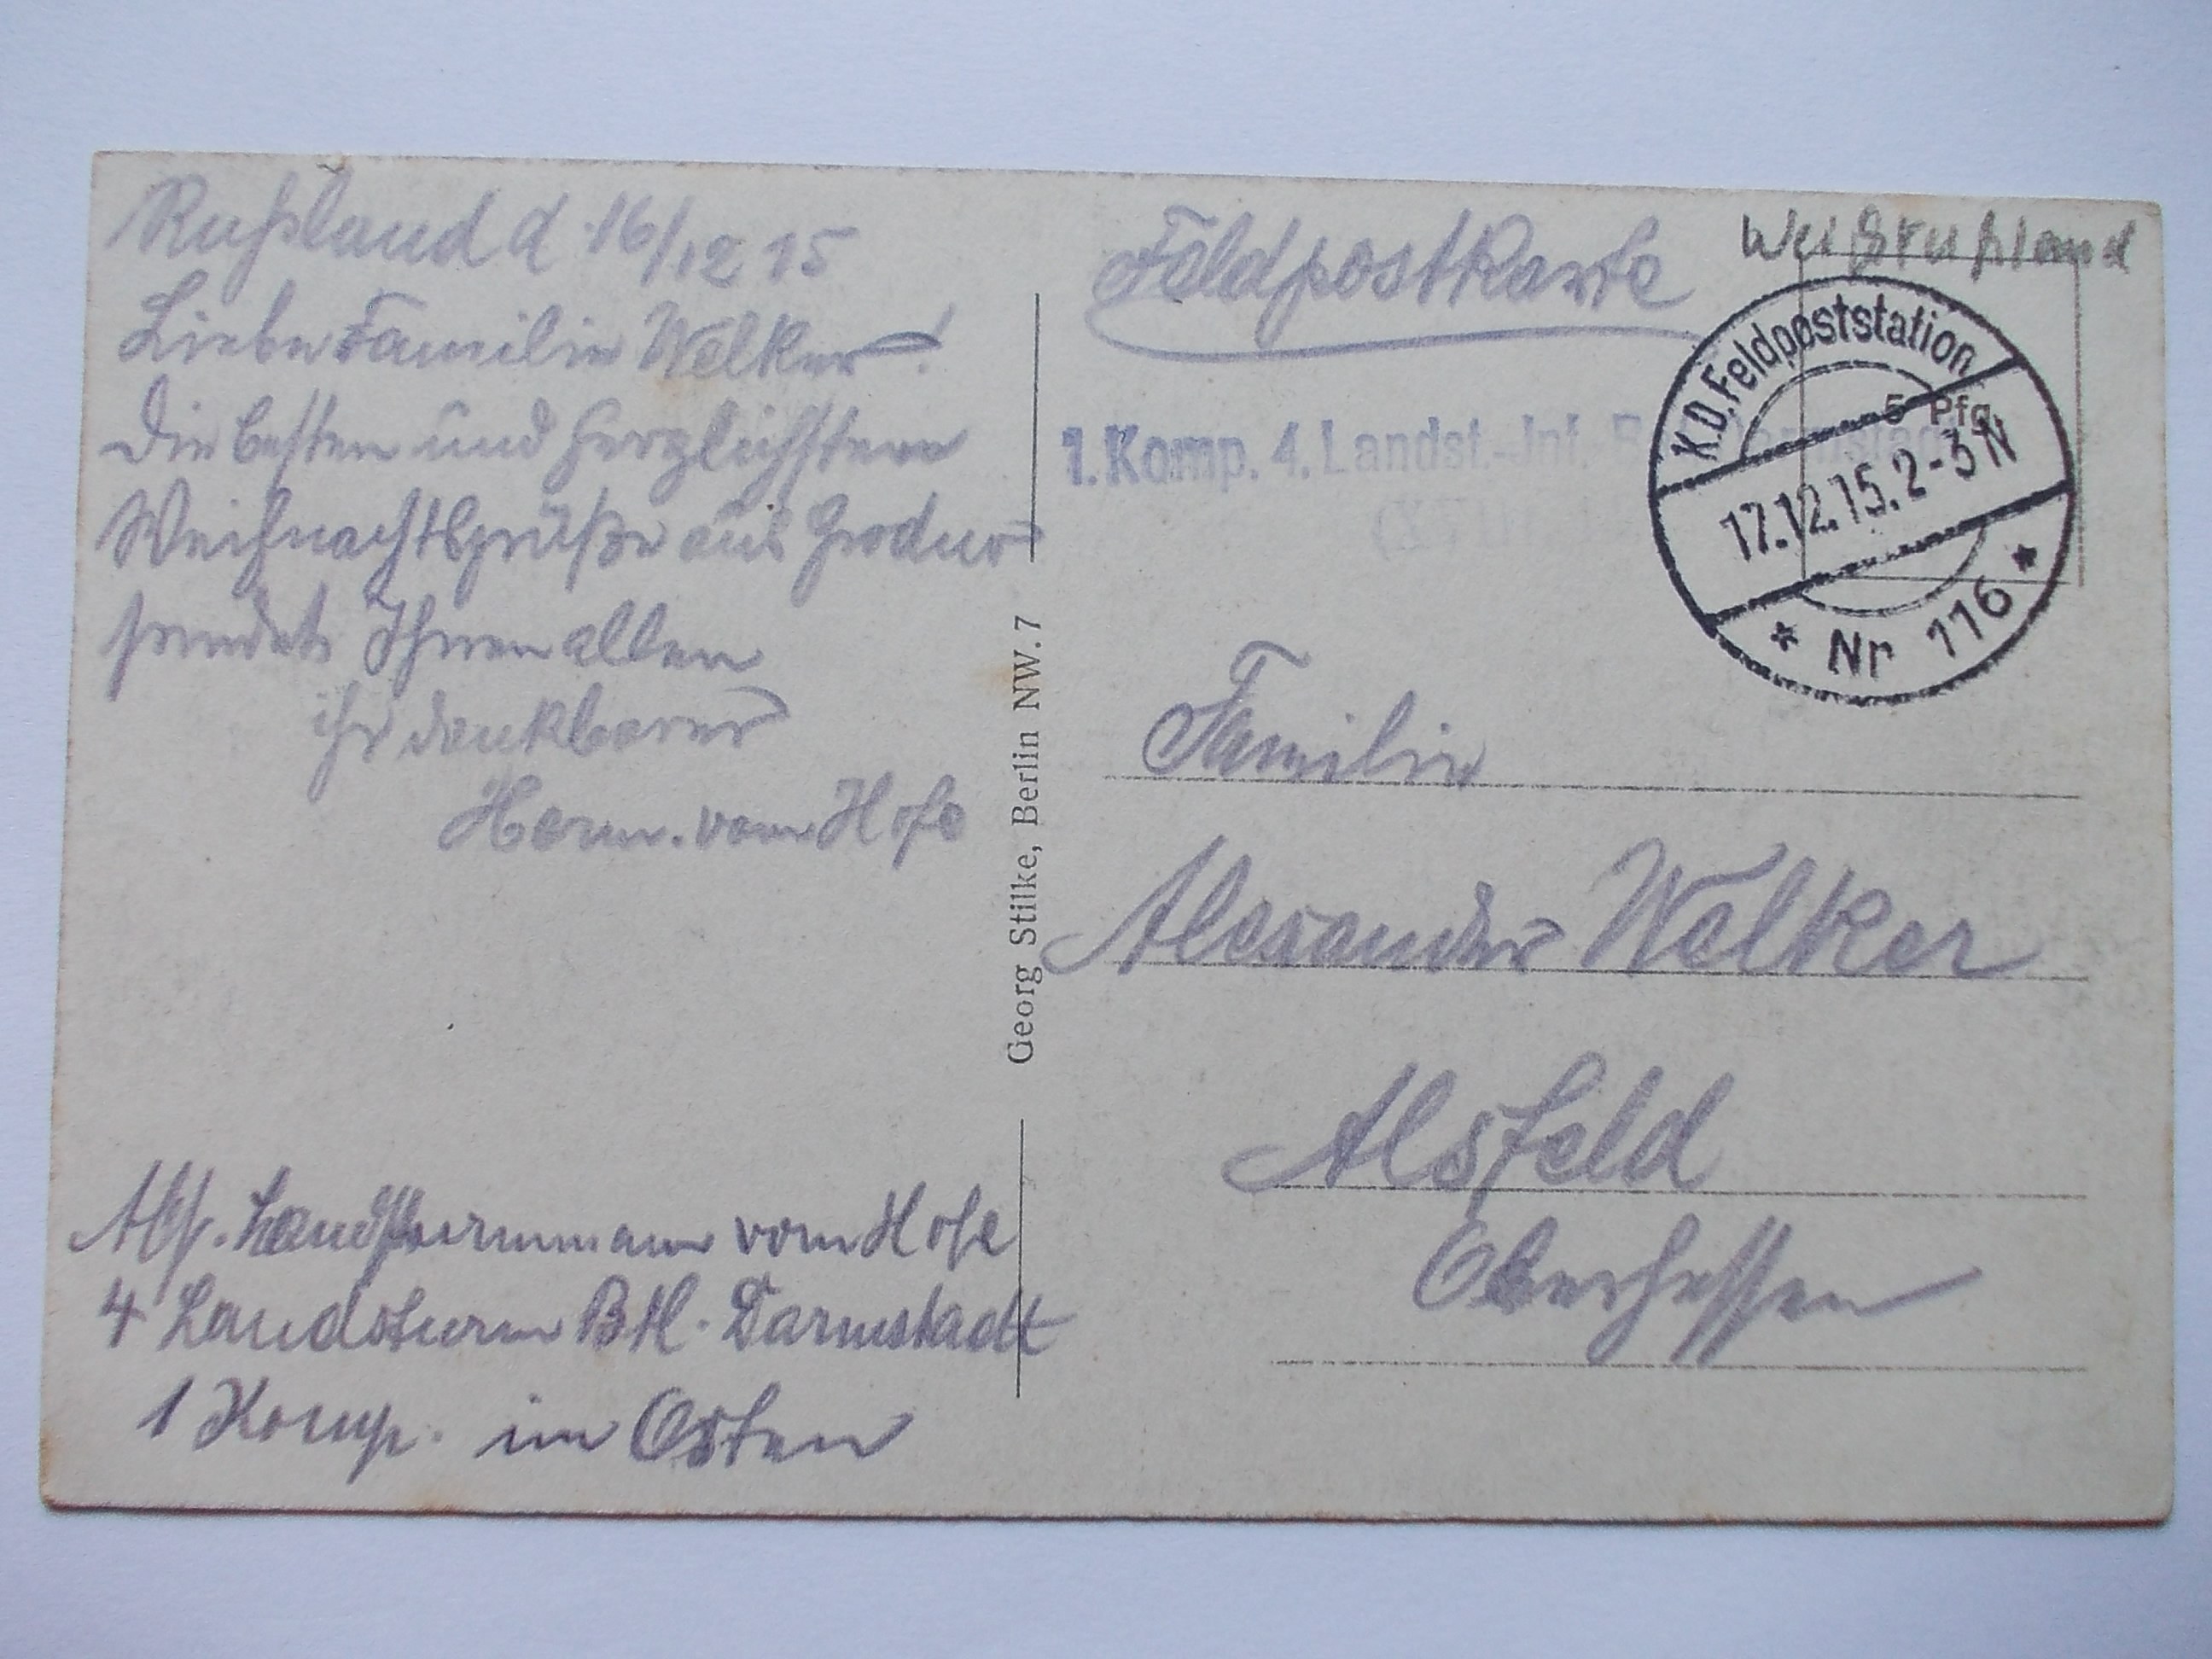 Rußland d 16/12 15
Liebe Familie Welker!
Die besten und herzlichsten
Weihnachtsgrüße aus Grodno
sendet Ihnen allen
ihr dankbarer
Herm. vom Hofe
Abs. Landsturmmann vom Hofe
4 Landsturm Btl. Darmstadt
1 Komp. im Osten
Georg Stilke, Berlin NW. 7
Feldpostkarte
Weißrußland
1. Komp. 4. Landst.-Inf.
K.D. Feldpoststation
5 Pfg
17.12.15. 2-3 N
* Nr 116 *
Familie
Alexander Welker
Alsfeld
Oberhessen